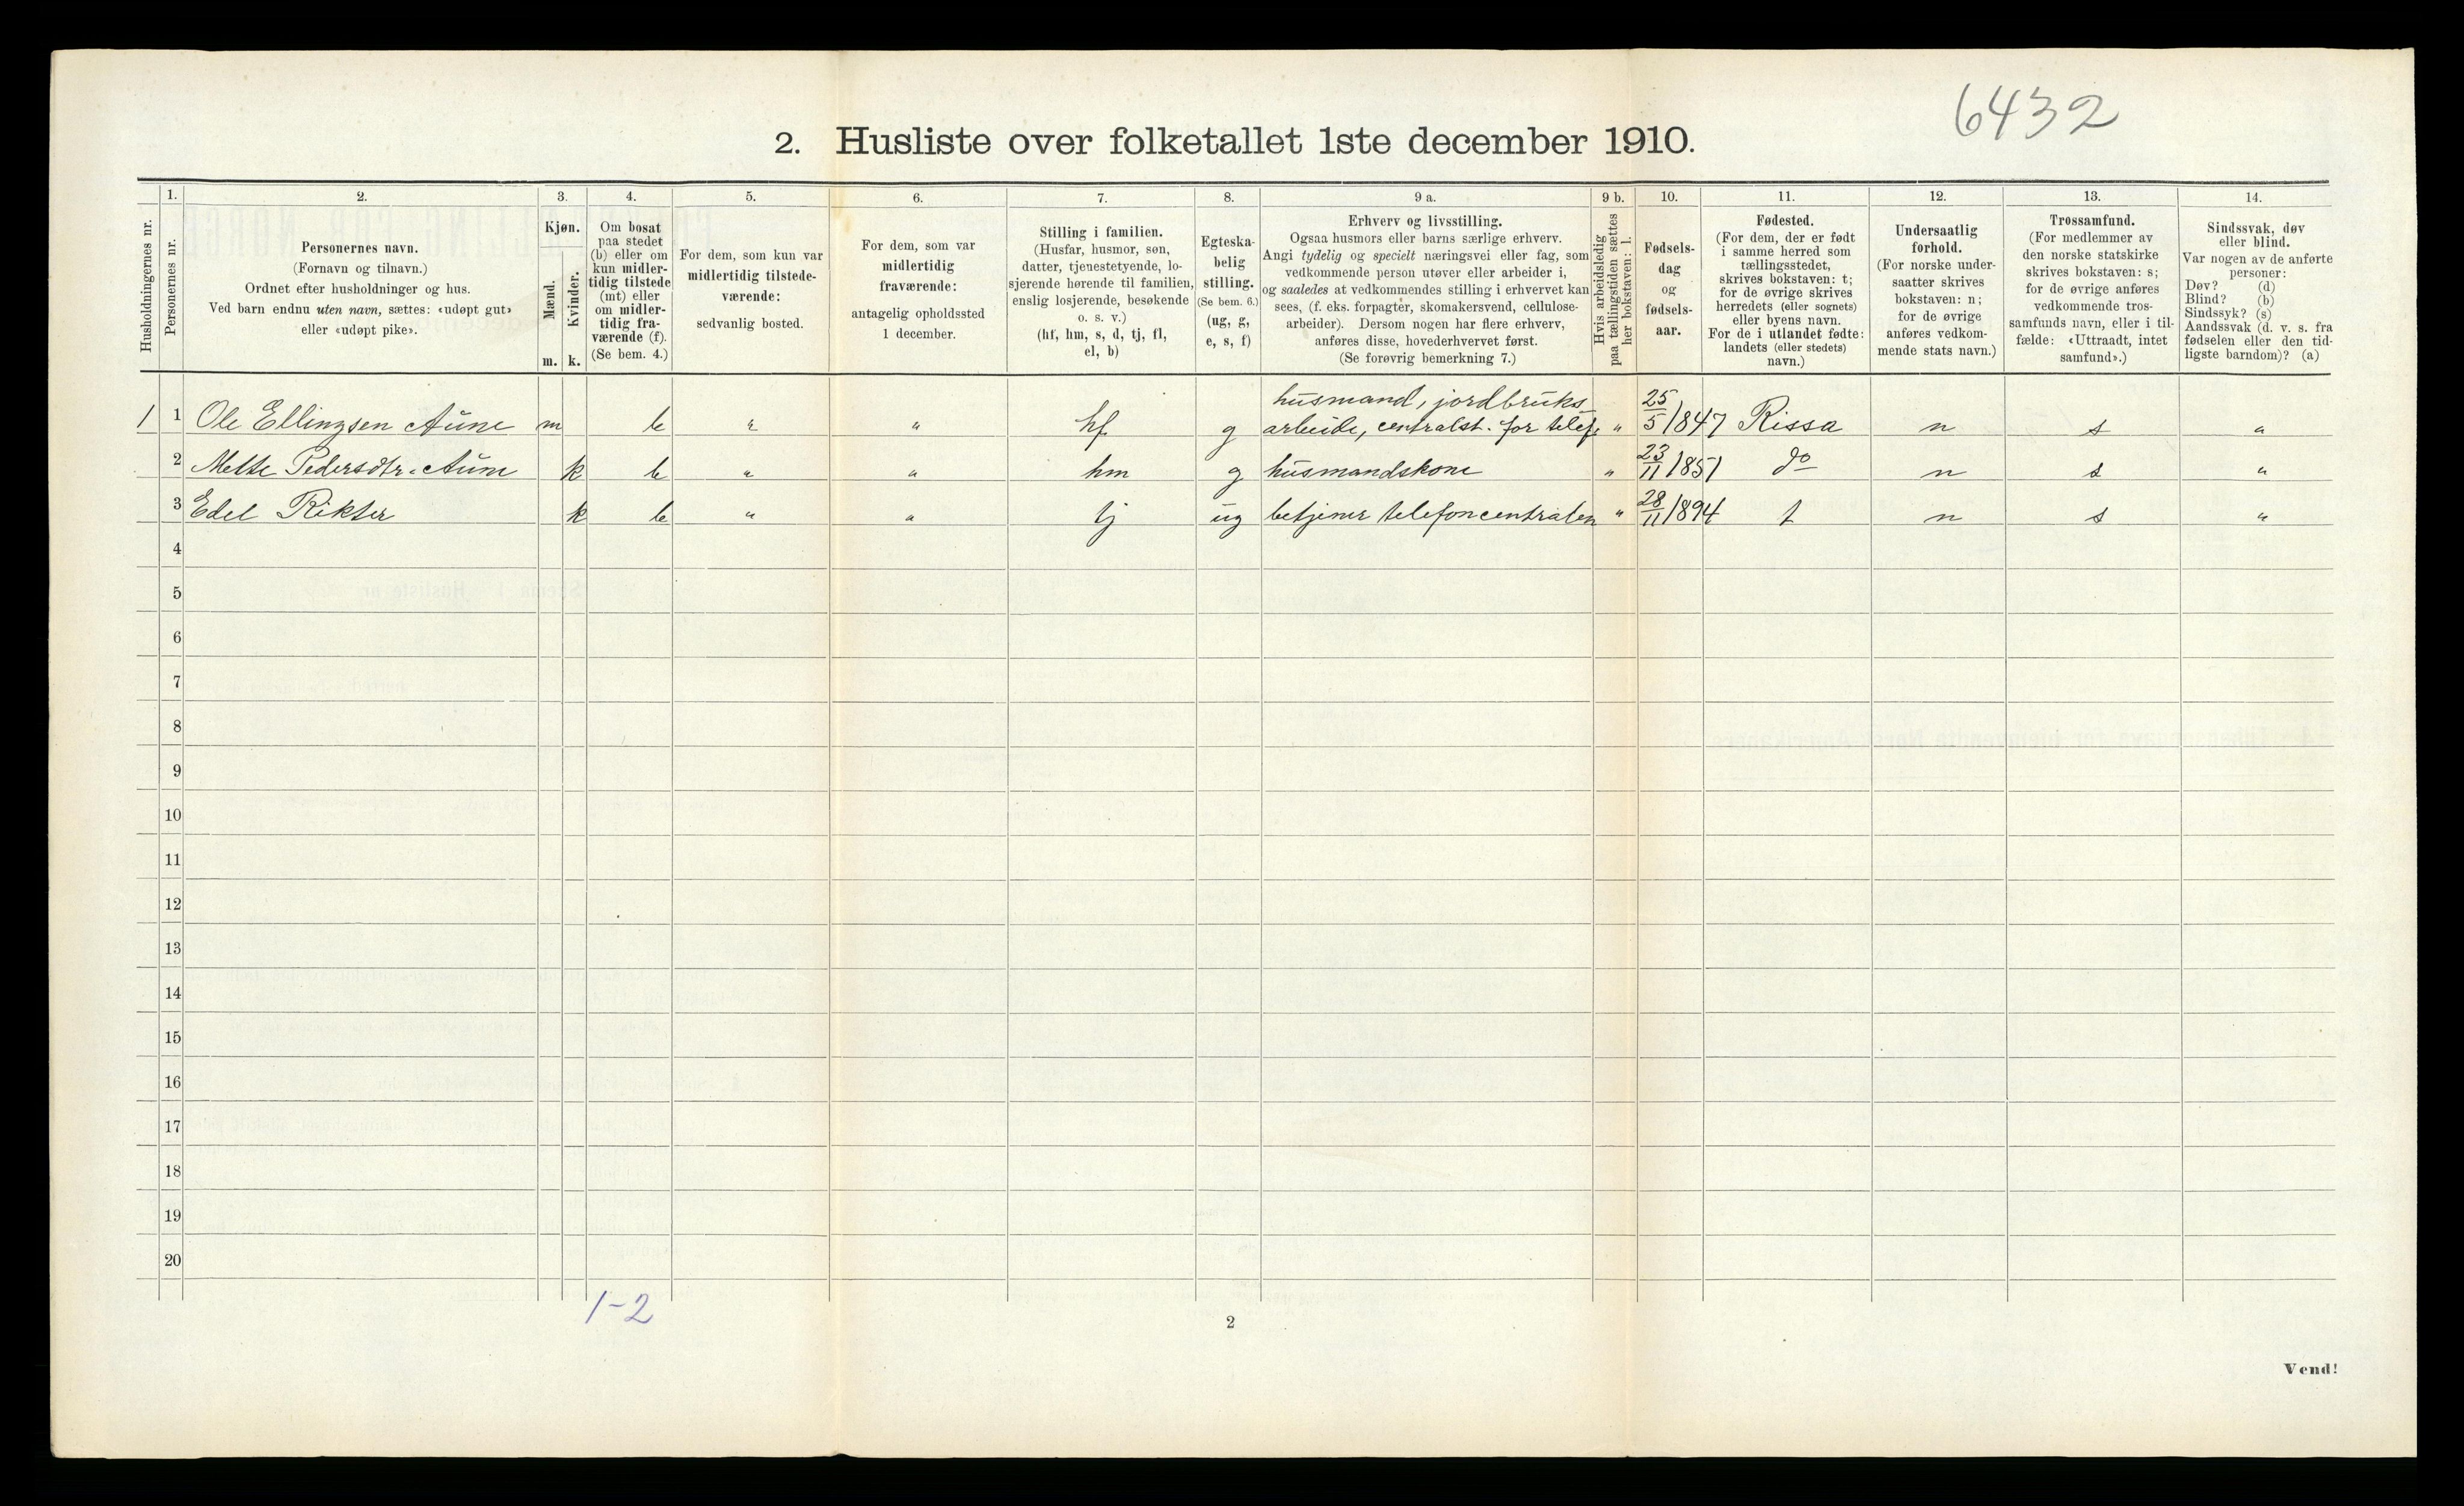 6432
2. Husliste over folketallet 1ste december 1910.
Husholdningernes nr.
1.
Personernes nr.
2.
Personernes navn.
(Fornavn og tilnavn.)
Ordnet efter husholdninger og hus.
Ved barn endnu uten navn, sættes: «udøpt gut»
eller «udøpt pike».
3.
Kjøn.
Mænd.
Kvinder.
m. k.
4.
Om bosat
paa stedet
(b) eller om
kun midler-
tidig tilstede
(mt) eller
om midler-
tidig fra-
værende (f).
(Se bem. 4.)
5.
For dem, som kun var
midlertidig tilstede-
værende:
sedvanlig bosted.
6.
For dem, som var
midlertidig
fraværende:
antagelig opholdssted
1 december.
7.
Stilling i familien.
(Husfar, husmor, søn,
datter, tjenestetyende, lo-
sjerende hørende til familien,
enslig losjerende, besøkende
o. s. v.)
(hf, hm, s, d, tj, fl,
el, b)
8.
Egteska-
belig
stilling.
(Se bem. 6.)
(ug, g,
e, s, f)
9 a.
Erhverv og livsstilling.
Ogsaa husmors eller barns særlige erhverv.
Angi tydelig og specielt næringsvei eller fag, som
vedkommende person utøver eller arbeider i,
og saaledes at vedkommendes stilling i erhvervet kan
sees, (f. eks. forpagter, skomakersvend, cellulose-
arbeider). Dersom nogen har flere erhverv,
anføres disse, hovederhvervet først.
(Se forøvrig bemerkning 7.)
9 b.
Hvis arbeidsledig
paa tællingstiden sættes
her bokstaven: l.
10.
Fødsels-
dag
og
fødsels-
aar.
11.
Fødested.
(For dem, der er født
i samme herred som
tællingsstedet,
skrives bokstaven: t;
for de øvrige skrives
herredets (eller sognets)
eller byens navn.
For de i utlandet fødte:
landets (eller stedets)
navn.)
12.
Undersaatlig
forhold.
(For norske under-
saatter skrives
bokstaven: n;
for de øvrige
anføres vedkom-
mende stats navn.)
13.
Trossamfund.
(For medlemmer av
den norske statskirke
skrives bokstaven: s;
for de øvrige anføres
vedkommende tros-
samfunds navn, eller i til-
fælde: «Uttraadt, intet
samfund».)
14.
Sindssvak, døv
eller blind.
Var nogen av de anførte
personer:
Døv? (d)
Blind? (b)
Sindssyk? (s)
Aandssvak (d. v. s. fra
fødselen eller den tid-
ligste barndom)? (a)
1 1 Ole Ellingsen Aune m b " " hf g husmand, jordbruks
arbeide, centralst. for telef. " 25/5 1847 Rissa n s "
2 Mette Pedersdtr. Aune k b " " hm g husmandskone " 23/11 1851 do n s "
3 Edel Rikter k b " " tj ug betjener telefoncentralen " 28/11 1894 t n s "
4
5
6
7
8
9
10
11
12
13
14
15
16
17
18
19
20
1-2
2
Vend!